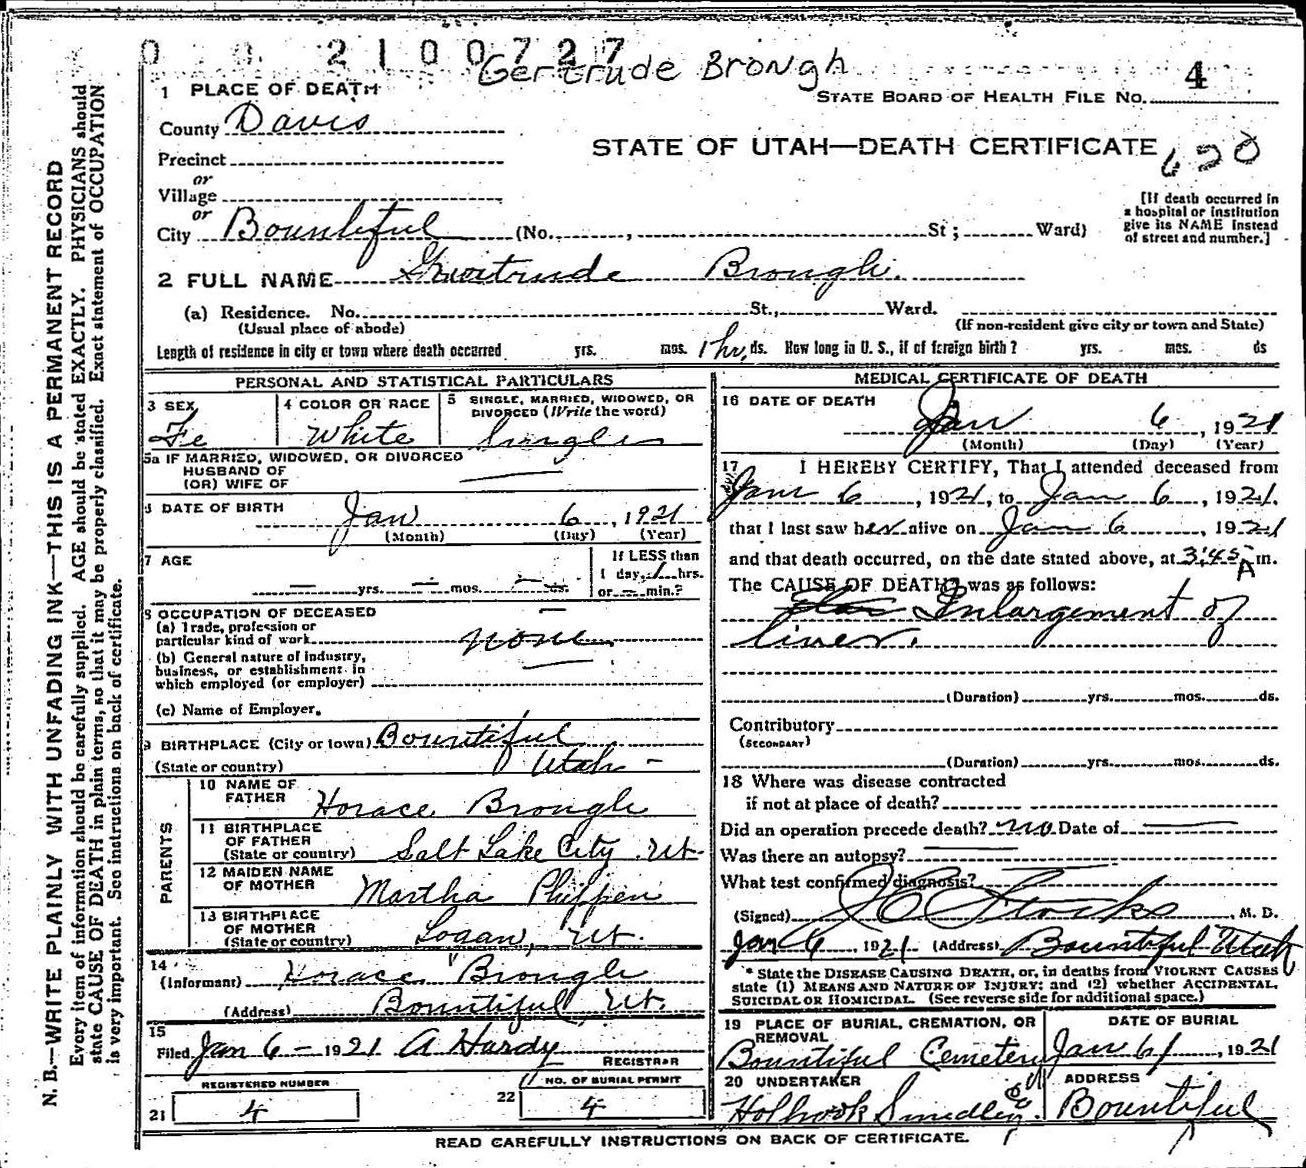 0 0 2100727
Gertrude Brough
1 PLACE OF DEATH
STATE BOARD OF HEALTH FILE NO. 4
County Davis
STATE OF UTAH—DEATH CERTIFICATE 620
Precinct
or
Village
or
City Bountiful (No. , St; Ward)
[If death occurred in
a hospital or institution
give its NAME instead
of street and number.]
2 FULL NAME Geartrude Brough.
(a) Residence. No. St., Ward.
(Usual place of abode) (If non-resident give city or town and State)
Length of residence in city or town where death occurred yrs. mos. 1 hr, ds. How long in U. S., if of foreign birth? yrs. mos. ds
PERSONAL AND STATISTICAL PARTICULARS
3 SEX
Fe
4 COLOR OR RACE
White
5 SINGLE, MARRIED, WIDOWED, OR
DIVORCED (Write the word)
Single
5a IF MARRIED, WIDOWED, OR DIVORCED
HUSBAND OF
(OR) WIFE OF
DATE OF BIRTH Jan 6, 1921
(Month) (Day) (Year)
7 AGE
— yrs. — mos. — ds.
If LESS than
1 day, 1 hrs.
or — min.?
8 OCCUPATION OF DECEASED
(a) Trade, profession or
particular kind of work none
(b) General nature of industry,
business, or establishment in
which employed (or employer)
(c) Name of Employer.
9 BIRTHPLACE (City or town) Bountiful
(State or country) Utah -
PARENTS
10 NAME OF
FATHER Horace Brough
11 BIRTHPLACE
OF FATHER
(State or country) Salt Lake City Ut.
12 MAIDEN NAME
OF MOTHER Martha Phippen
13 BIRTHPLACE
OF MOTHER
(State or country) Logan, Ut.
14
(Informant) Horace Brough
(Address) Bountiful Ut.
15
Filed Jan 6 - 1921 A Hardy
REGISTRAR
REGISTERED NUMBER
21 4
NO. OF BURIAL PERMIT
22 4
MEDICAL CERTIFICATE OF DEATH
16 DATE OF DEATH
Jan 6, 1921
(Month) (Day) (Year)
17 I HEREBY CERTIFY, That I attended deceased from
Jan 6, 1921, to Jan 6, 1921,
that I last saw her alive on Jan 6 1921
and that death occurred, on the date stated above, at 3:45 A m.
The CAUSE OF DEATH was as follows:
Inlargement of
liver.
(Duration) yrs. mos. ds.
Contributory
(SECONDARY)
(Duration) yrs. mos. ds.
18 Where was disease contracted
if not at place of death?
Did an operation precede death? no Date of —
Was there an autopsy? —
What test confirmed diagnosis? —
(Signed) J C Stocks, M. D.
Jan 6, 1921 (Address) Bountiful Utah
* State the DISEASE CAUSING DEATH, or, in deaths from VIOLENT CAUSES
state (1) MEANS AND NATURE OF INJURY; and (2) whether ACCIDENTAL,
SUICIDAL OR HOMICIDAL. (See reverse side for additional space.)
19 PLACE OF BURIAL, CREMATION, OR
REMOVAL
Bountiful Cemetery
DATE OF BURIAL
Jan 6, 1921
20 UNDERTAKER
Holbrook Smedley Co
ADDRESS
Bountiful
READ CAREFULLY INSTRUCTIONS ON BACK OF CERTIFICATE.
N. B.—WRITE PLAINLY WITH UNFADING INK—THIS IS A PERMANENT RECORD
Every item of information should be carefully supplied. AGE should be stated EXACTLY. PHYSICIANS should
state CAUSE OF DEATH in plain terms, so that it may be properly classified. Exact statement of OCCUPATION
is very important. See instructions on back of certificate.